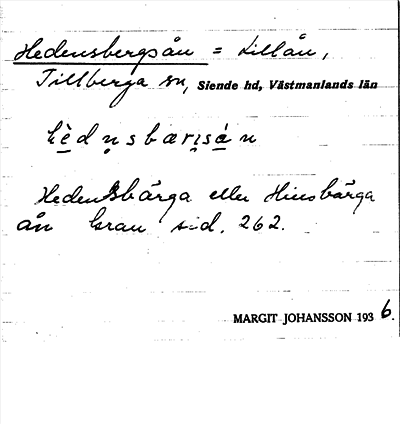 Hedensbergsån = Lillån,
Tillberga sn, Siende hd, Västmanlands län
hèdṇsbærı̣sán
Hedensbärga eller Hinsbärga
ån Grau sid. 262.
MARGIT JOHANSSON 1936.